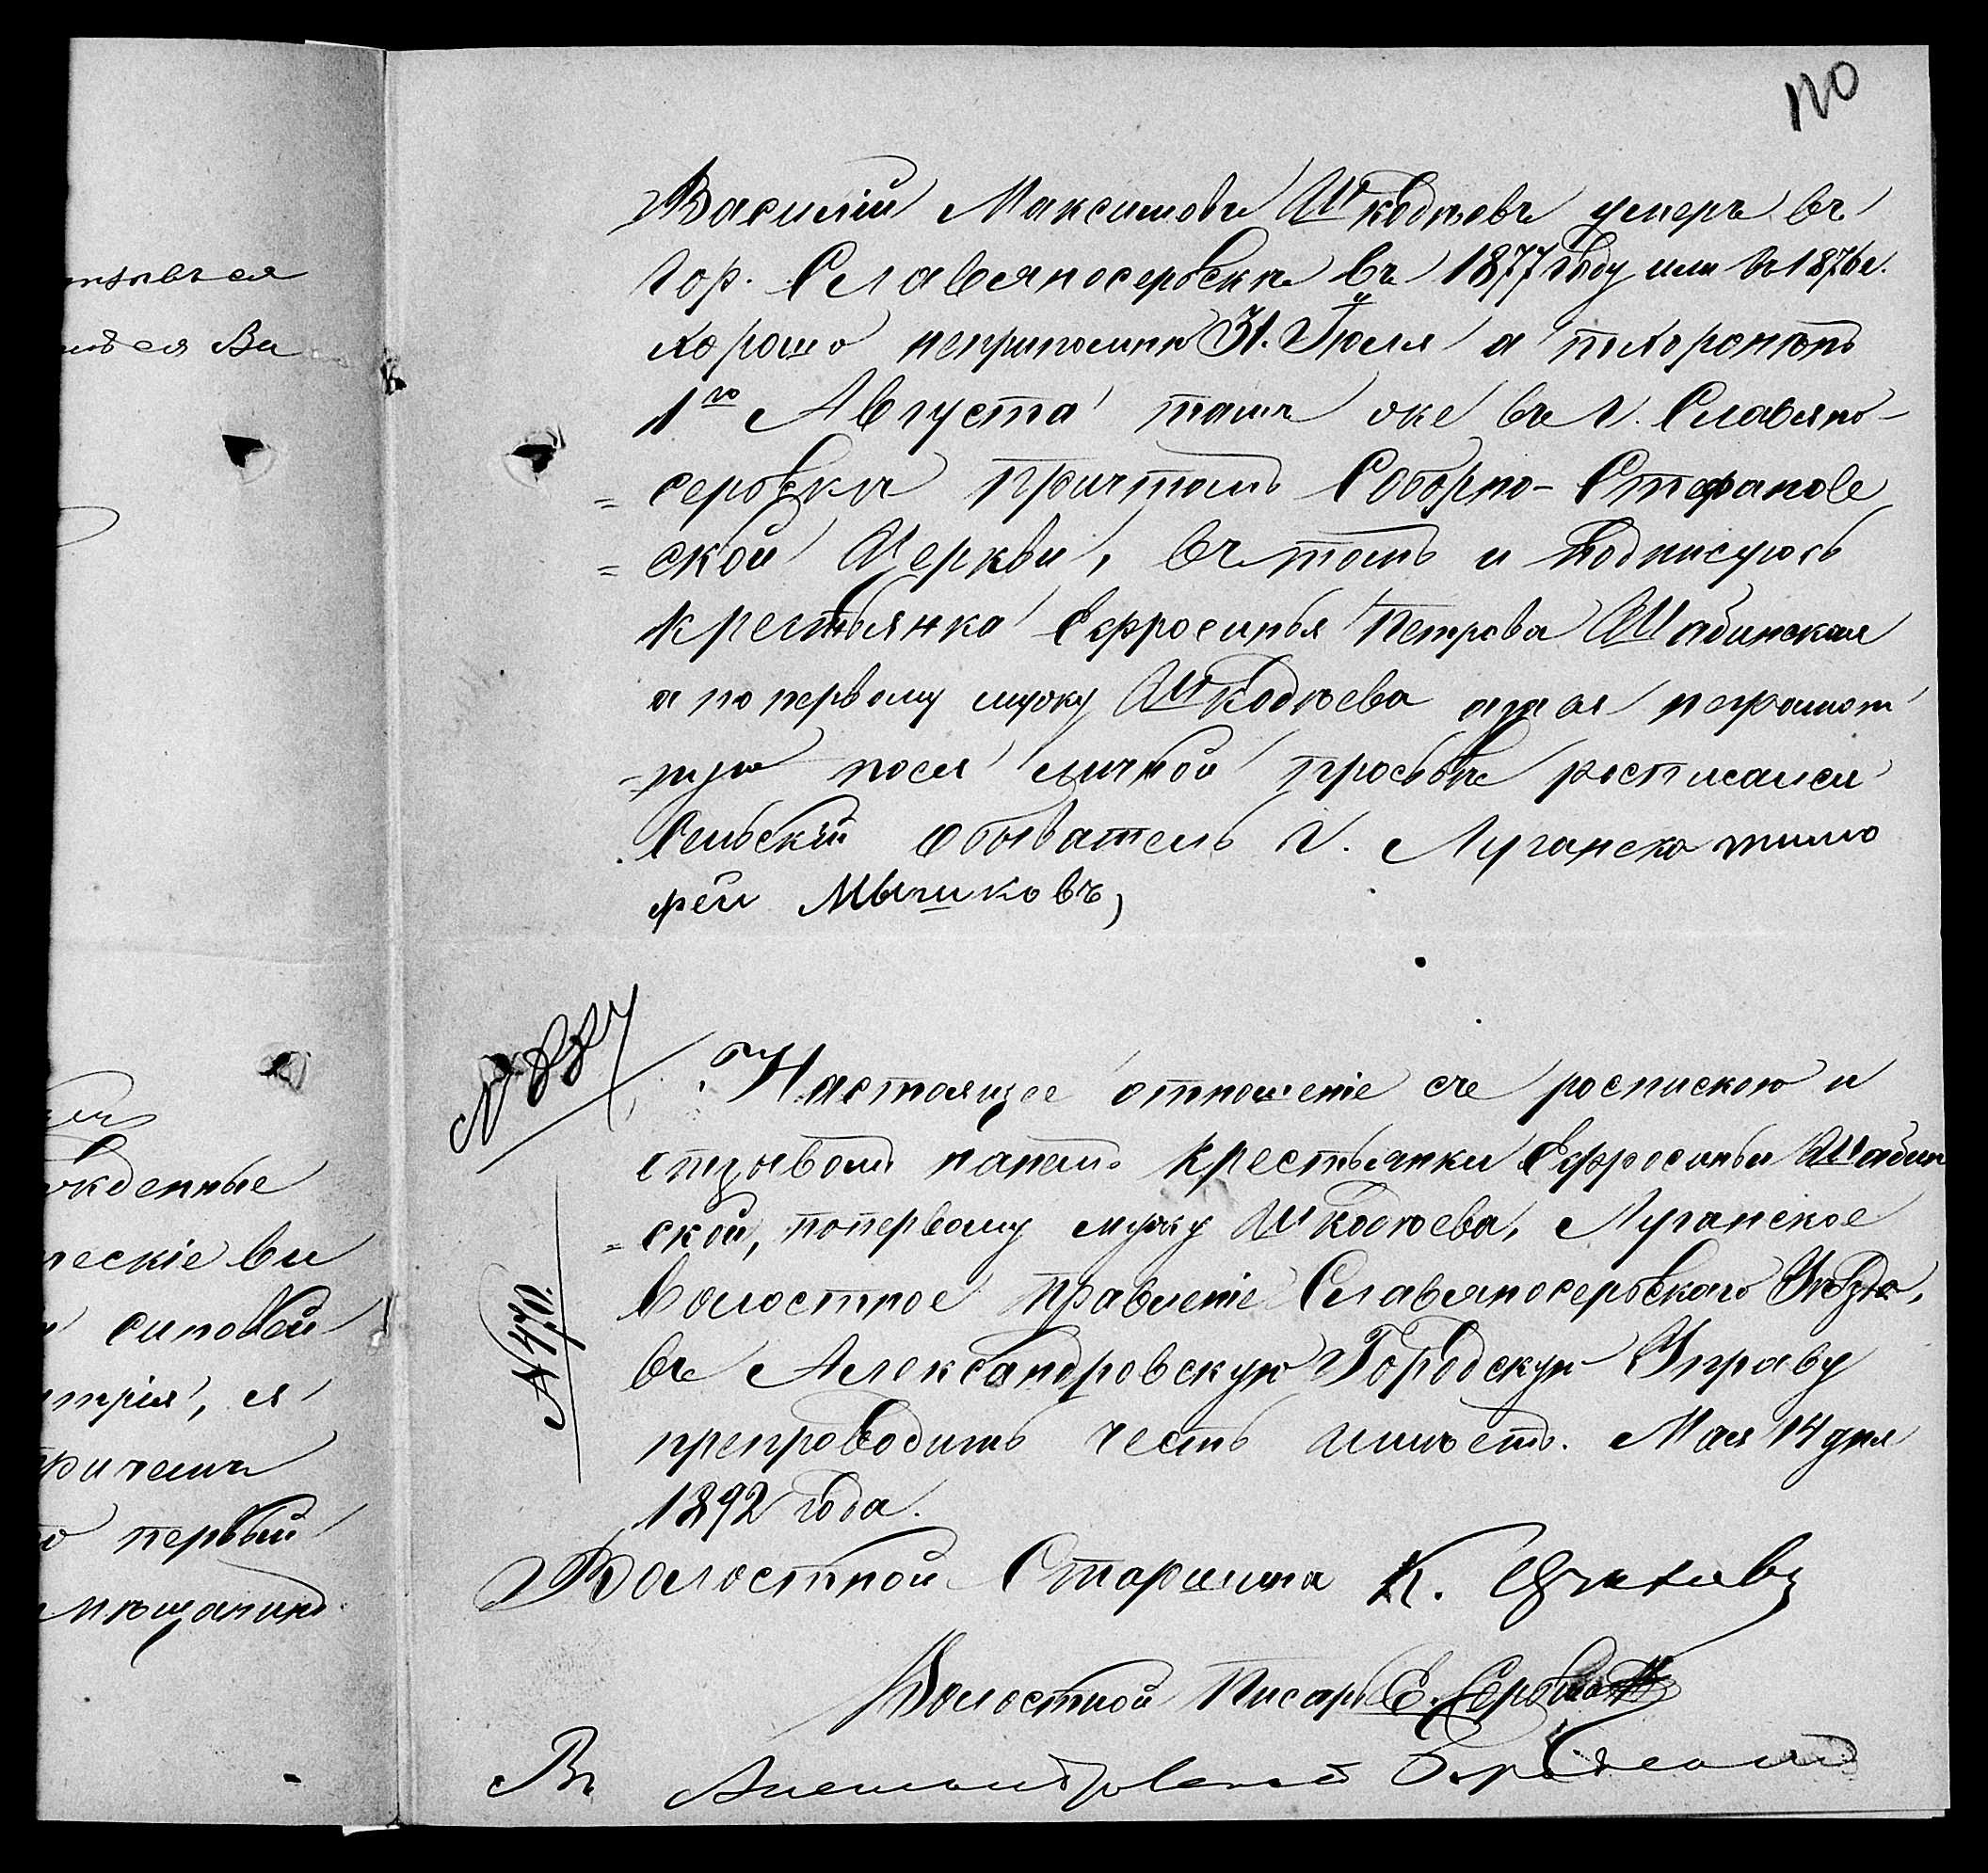 120
Василій Максимовъ Шкодѣевъ умеръ въ
гор. Славяносербскѣ въ 1877 году или въ 1876 г.
хорошо неприпомню 31. Іюля а похороненъ
1го Августа тамъ же въ г. Славяно-
= сербскѣ причтомъ Соборно-Стефанов
= ской Церкви, въ томъ и подписуюсь
крестьянка Ефросинья Петрова Шабинская
а по первому мужу Шкодѣева а за ея неграмот
- ную посля личной прозьбѣ росписался
Сельскій обыватель г. Луганска тимо
фей Мышковъ,
Настоящее отношеніе съ роспискою и
отзывомъ крестьянки Ефросиньи Шабин
= ской, попервому мужу Шкодѣева, Луганское
Волостное Правленіе Славяносербскаго Уѣзда,
въ Александровскую Городскую Управу
препроводить честь имѣетъ. Мая 14 дня
1892 года.
Волостной Старшина К.
Волостной Писарь Е.
Въ
трія, я
первый
мѣщанинъ